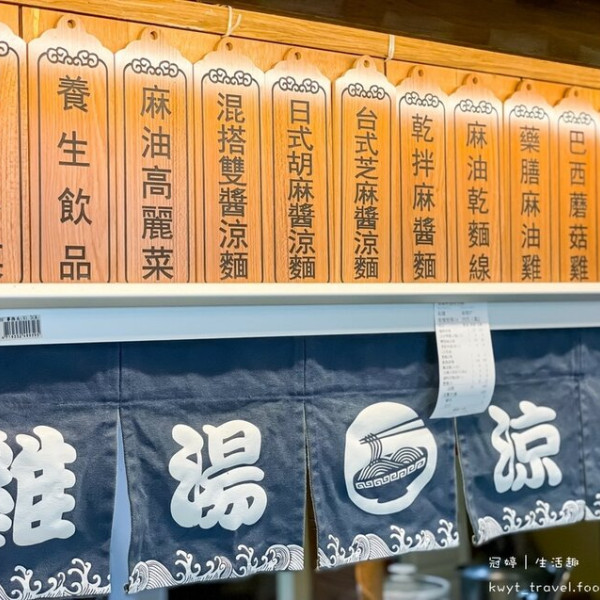 養生飲品
麻油高麗菜
混搭雙醬涼麵
日式胡麻醬涼麵
台式芝麻醬涼麵
乾拌麻醬麵
麻油乾麵線
藥膳麻油雞
巴西蘑菇雞
雞湯 涼
冠婷 | 生活趣
kwyt_travel.foo